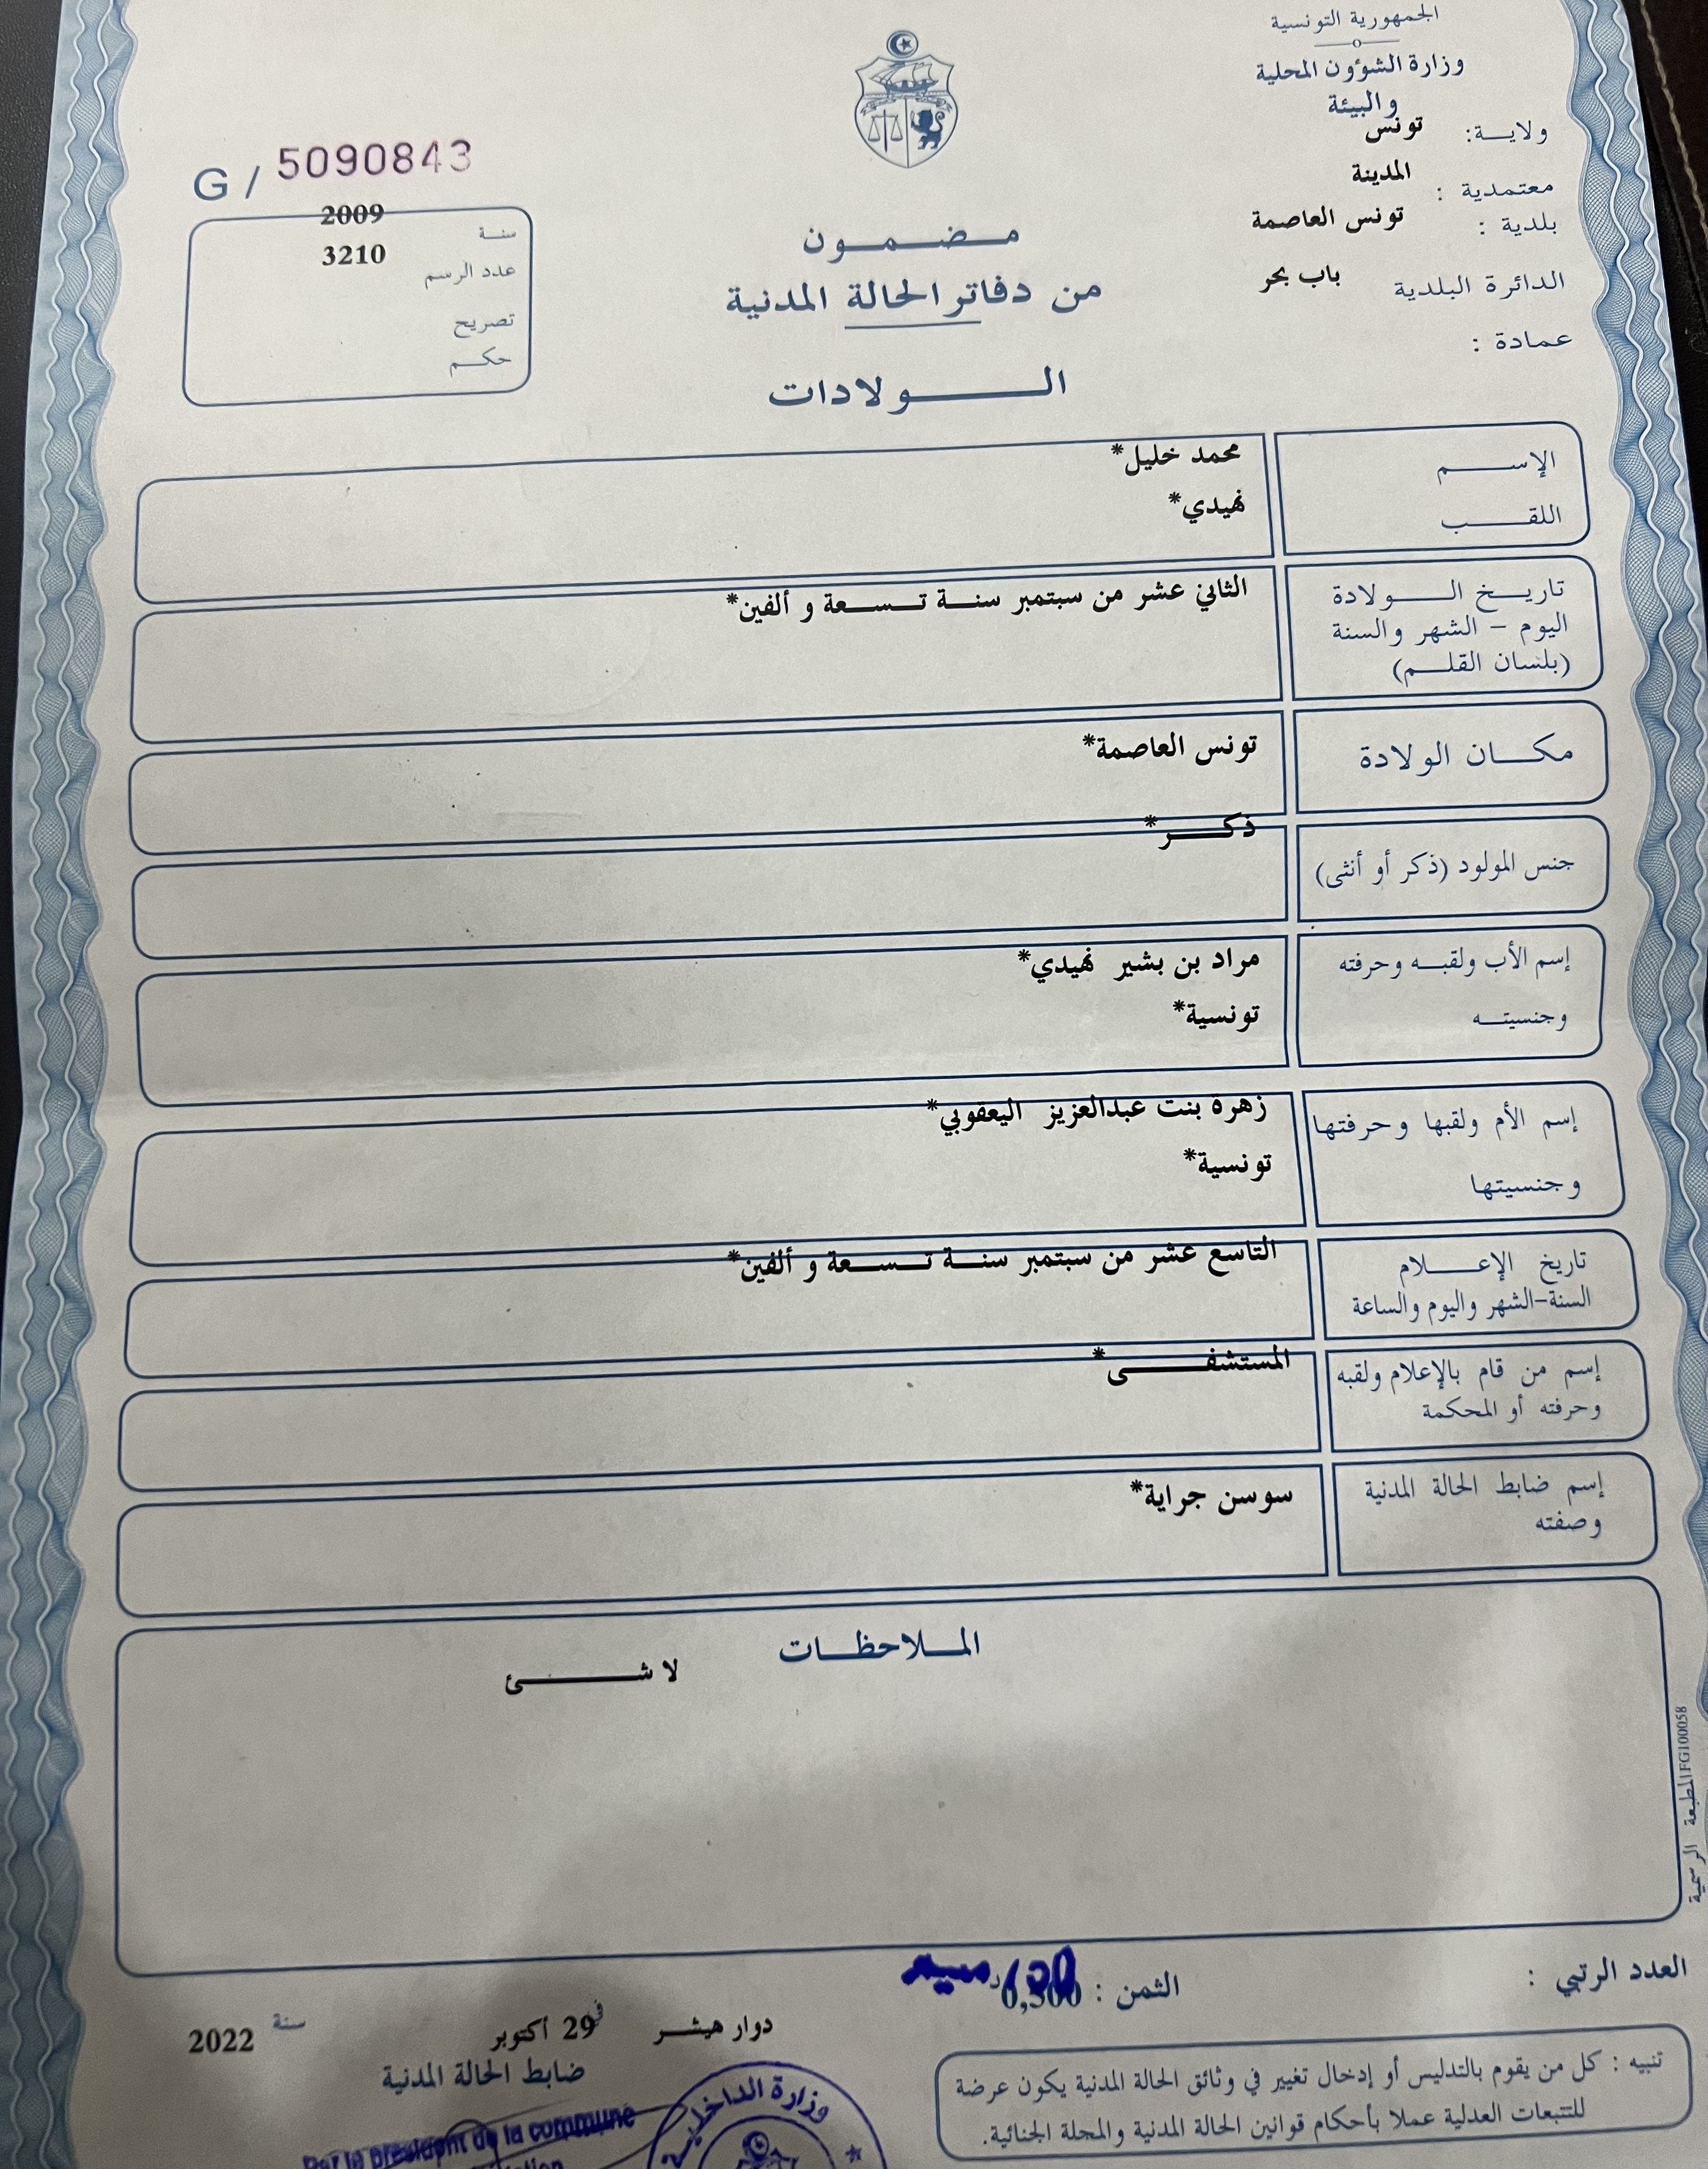 الجمهورية التونسية
وزارة الشؤون المحلية
والبيئة
ولاية: تونس
معتمدية : المدينة
بلدية : تونس العاصمة
الدائرة البلدية باب بحر
عمادة :
G / 5090843
سنة 2009
عدد الرسم 3210
تصريح
حكم
مضمون
من دفاتر الحالة المدنية
الولادات
الإسم محمد خليل*
اللقب نهيدي*
تاريخ الولادة الثاني عشر من سبتمبر سنة تسعة و ألفين*
اليوم – الشهر والسنة
(بلسان القلم)
مكان الولادة تونس العاصمة*
جنس المولود (ذكر أو أنثى) ذكر*
إسم الأب ولقبه وحرفته مراد بن بشير نهيدي*
وجنسيته تونسية*
إسم الأم ولقبها وحرفتها زهرة بنت عبدالعزيز اليعقوبي*
وجنسيتها تونسية*
تاريخ الإعلام التاسع عشر من سبتمبر سنة تسعة و ألفين*
السنة-الشهر واليوم والساعة
إسم من قام بالإعلام ولقبه المستشفى*
وحرفته أو المحكمة
إسم ضابط الحالة المدنية سوسن جراية*
وصفته
الملاحظات
لا شئ
المطبعة الرسمية FG100058
العدد الرتبي :
الثمن : 0,500
دوار هيشر في 29 أكتوبر سنة 2022
ضابط الحالة المدنية
Par le président de la commune
وزارة الداخلية
تنبيه : كل من يقوم بالتدليس أو إدخال تغيير في وثائق الحالة المدنية يكون عرضة
للتتبعات العدلية عملا بأحكام قوانين الحالة المدنية والمجلة الجنائية.